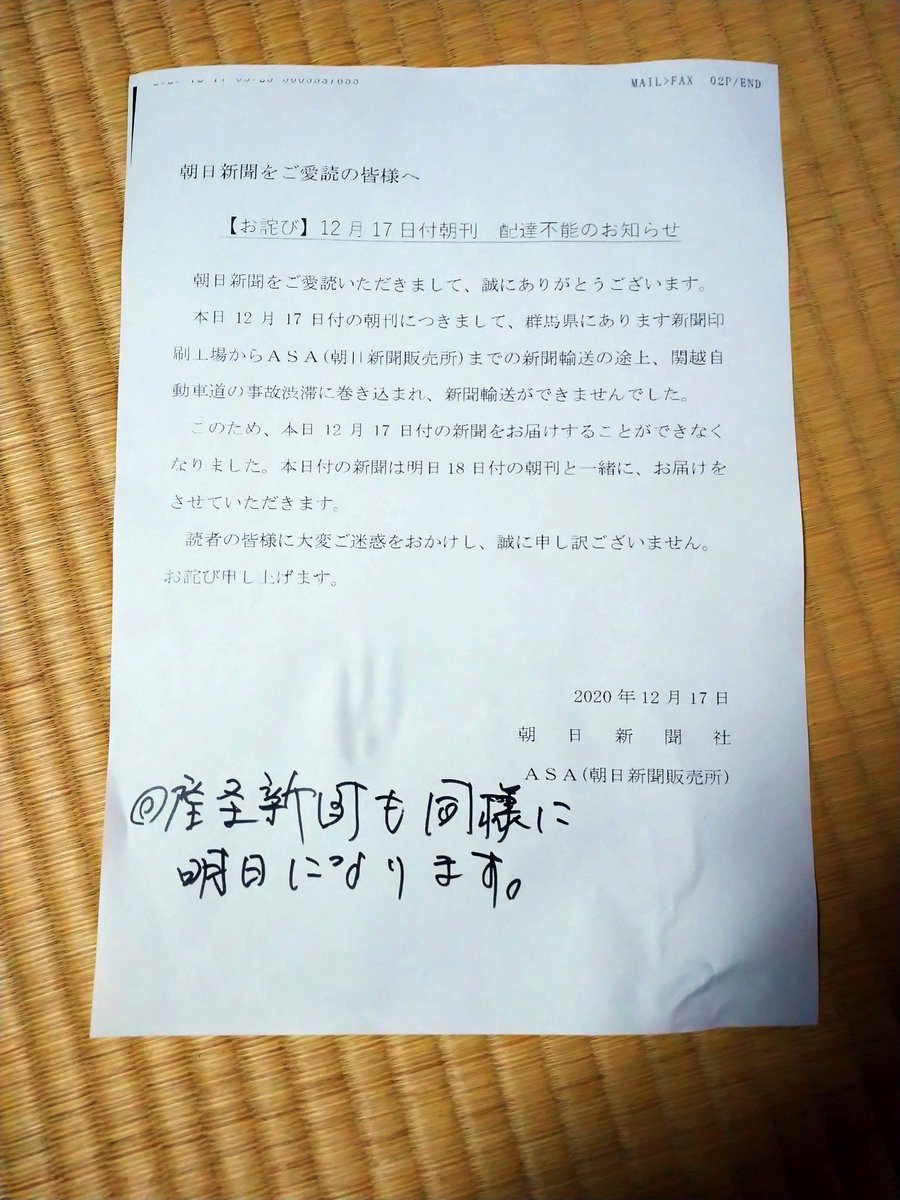 MAIL>FAX 02P/END
朝日新聞をご愛読の皆様へ
【お詫び】12月17日付朝刊 配達不能のお知らせ
朝日新聞をご愛読いただきまして、誠にありがとうございます。
本日12月17日付の朝刊につきまして、群馬県にあります新聞印
刷工場からASA(朝日新聞販売所)までの新聞輸送の途上、関越自
動車道の事故渋滞に巻き込まれ、新聞輸送ができませんでした。
このため、本日12月17日付の新聞をお届けすることができなく
なりました。本日付の新聞は明日18日付の朝刊と一緒に、お届けを
させていただきます。
読者の皆様に大変ご迷惑をおかけし、誠に申し訳ございません。
お詫び申し上げます。
2020年12月17日
朝日新聞社
ASA(朝日新聞販売所)
◎産圣新聞も同様に
明日になります。